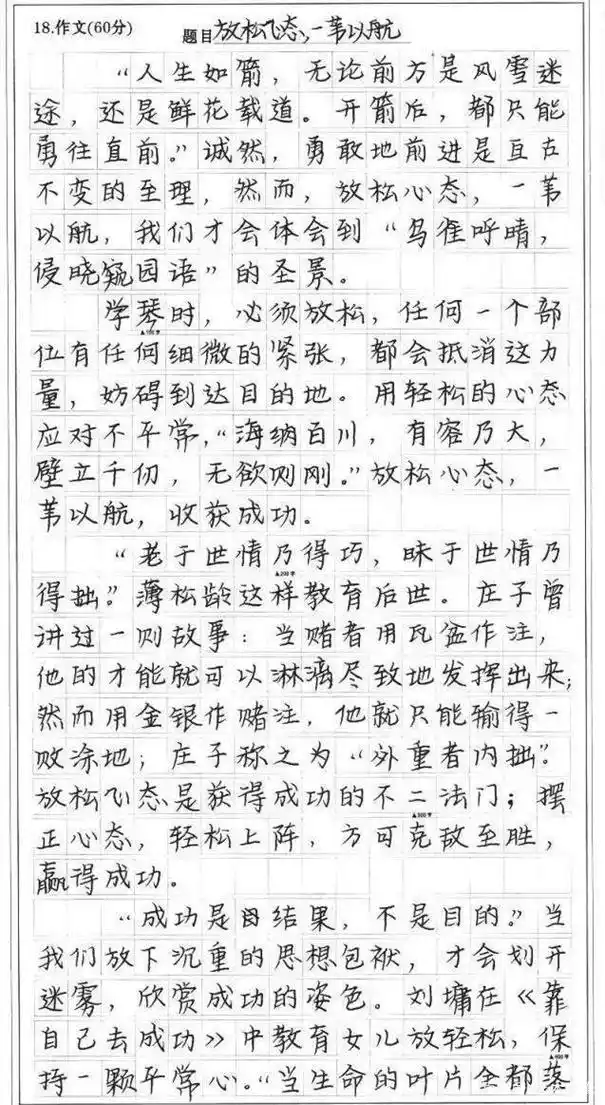 18.作文(60分) 题目 放松心态,一苇以航
“人生如箭，无论前方是风雪迷
途，还是鲜花载道。开箭后，都只能
勇往直前。”诚然，勇敢地前进是亘古
不变的至理，然而，放松心态，一苇
以航，我们才会体会到“鸟雀呼晴，
侵晓窥园语”的圣景。
学琴时，必须放松，任何一个部
位有任何细微的紧张，都会抵消这力
量，妨碍到达目的地。用轻松的心态
应对不平常，“海纳百川，有容乃大，
壁立千仞，无欲则刚。”放松心态，一
苇以航，收获成功。
“老于世情乃得巧，昧于世情乃
▲200字
得拙。”薄松龄这样教育后世。庄子曾
讲过一则故事：当赌者用瓦盆作注，
他的才能就可以淋漓尽致地发挥出来；
然而用金银作赌注，他就只能输得一
败涂地；庄子称之为“外重者内拙”。
放松心态是获得成功的不二法门；摆
正心态，轻松上阵，方可克敌至胜，
赢得成功。
“成功是结果，不是目的。”当
我们放下沉重的思想包袱，才会划开
迷雾，欣赏成功的姿色。刘墉在《靠
自己去成功》中教育女儿放轻松，保
持一颗平常心。“当生命的叶片全都落